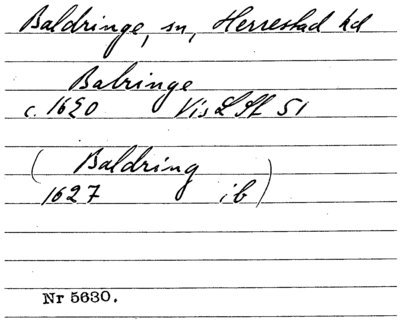 Baldringe, sn, Herrestad hd
Balringe
c. 1620 Vis L Sk 51
( Baldring
1627 ib )
Nr 5630.